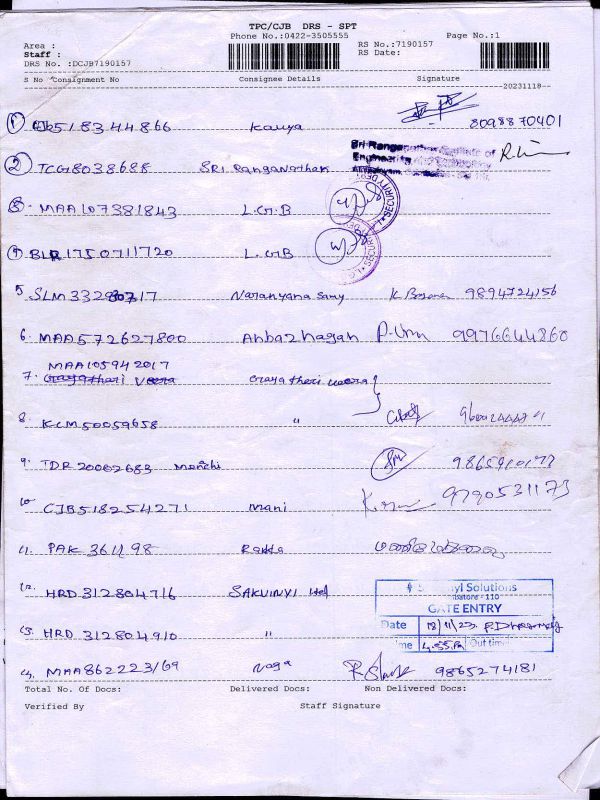 TPC/CJB DRS - SPT
Phone No.:0422-3505555 Page No.:1
Area :
Staff :
RS No.:7190157
RS Date:
DRS No. :DCJB7190157
S No Consignment No Consignee Details Signature
20231118
1 518344866 Kavya 8098870401
2 TCG8038688 SRI Ranganathan
Sri Ranganathan Institute of
Engineering and Technology
3 MAA107381843 L.G.B
SECURITY DEPT
4 BLR1750711720 L.GB
5 SLM33280717 Narayana Samy K 9894724156
6. MAA572627800 Anbazhagan 9976644860
MAA105942017
7. Gayatheri Veera Gayatheri veera
8 KCM50059658 "
9. TDR20062683 Menchi
10 CJB518254271 Mani 9790531173
11. PAK 361198
12. HRD 312804716 SAKUINYI Ltd
Solutions
GATE ENTRY
Date 18/11/23
13. HRD 312804910 "
4.55 Out time
14. MAA862223169 Naga 9865274181
Total No. Of Docs: Delivered Docs: Non Delivered Docs:
Verified By Staff Signature